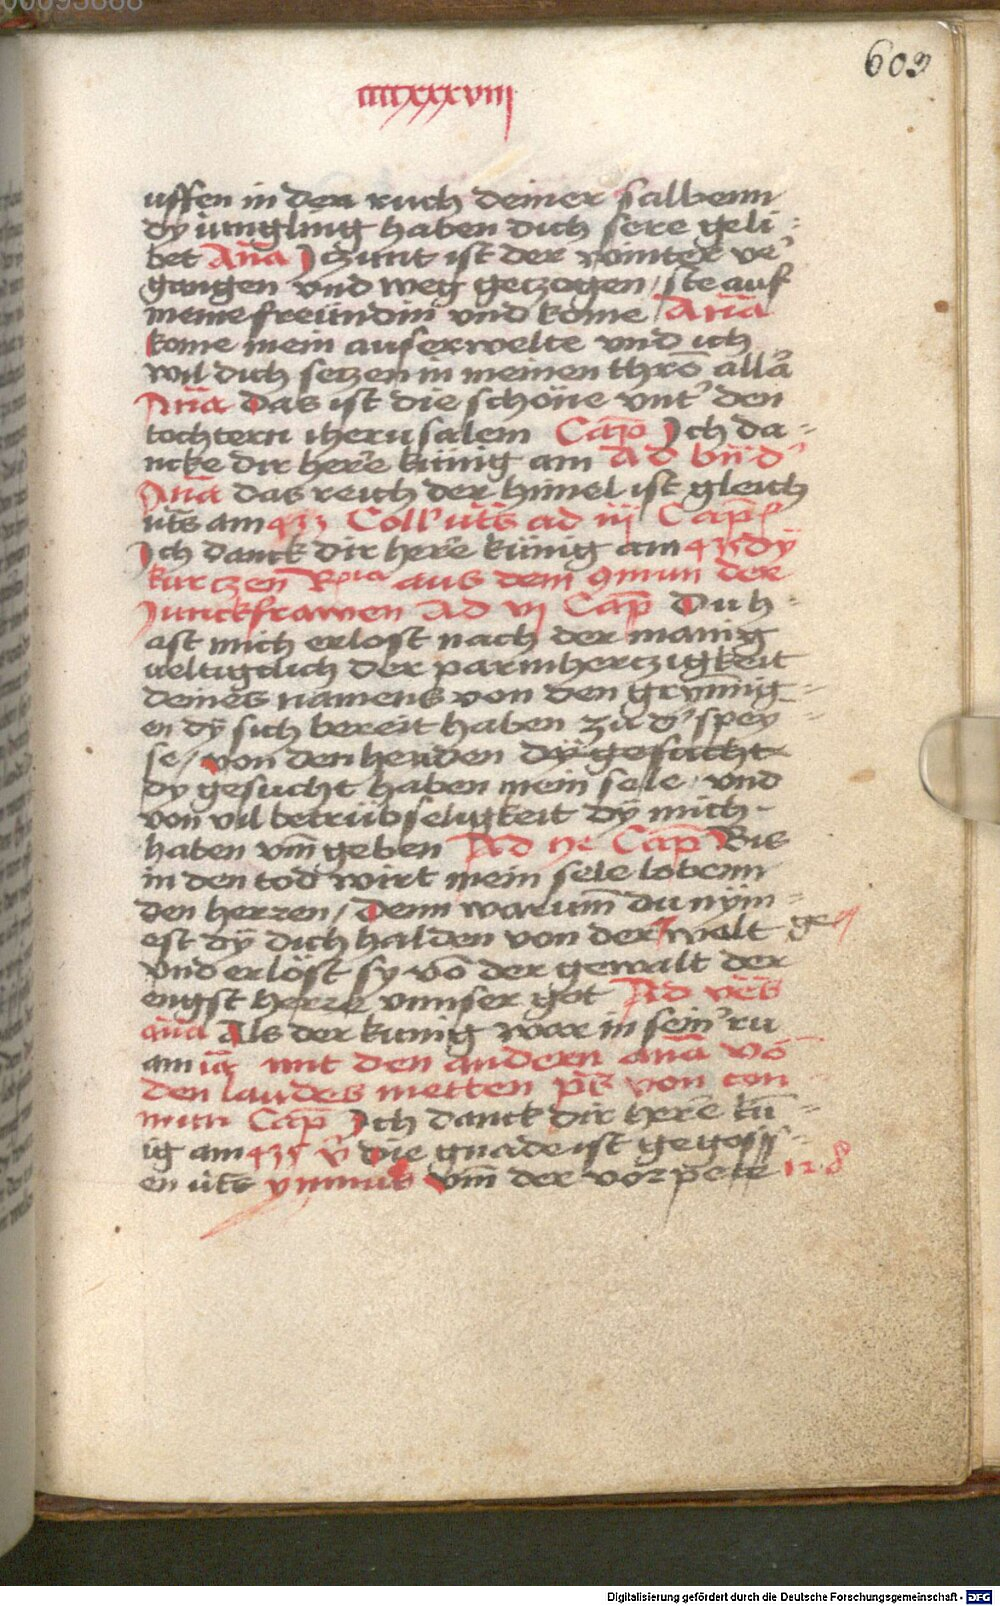 00093868
603
ccccxxxviij
uffen in den ruch deiner salbenn
dy iungling haben dich sere geli-
bet Aña Jczunt ist der winter ve᷑
gangen vnd weg geczogen / ste auf
meine freündin vnd kome Aña
kome mein auserwelte vnd ich
wil dich seczen in meinen thrō allã
Aña Das ist die schöne vnt᷑ den
tochtern iherusalem Cap̄ Jch da-
ncke dir here künig am Ad
Aña das reich der himel ist gleich
uts am Coll᷑ uts ad iij Cap̄
Jch danck dir here künig am dÿ
kurczen aus dem der
Junckfrawen Ad vj Cap̄ Du h-
ast mich erlost nach der manig
ueltigclich der parmherczigkeit
deines namens von den grym̄ig-
en dÿ sich bereit haben zu d᷑ spey-
se / von den henden dÿ gesucht
dy gesucht haben mein sele / vnd
von vil betrübseligkeit dÿ mich-
haben vm̄ geben Ad Cap̄ Bis
in den tod wirt mein sele lobenn
den herren / Denn warum̄ du nÿm-
est dÿ dich halden von der walt gen
vnd erlöst sy võ der gewalt der
engst herre vnnser got Ad ves
aña Als der kunig war in sein᷑ ru
am mit den andern aña võ
den laudes metten ps̄ von con-
mun Cap̄ Jch danck dir here kün-
ig am die gnade ist gegoss-
en uts ymnus Vm̄ der vorpete
Digitalisierung gefördert durch die Deutsche Forschungsgemeinschaft - DFG